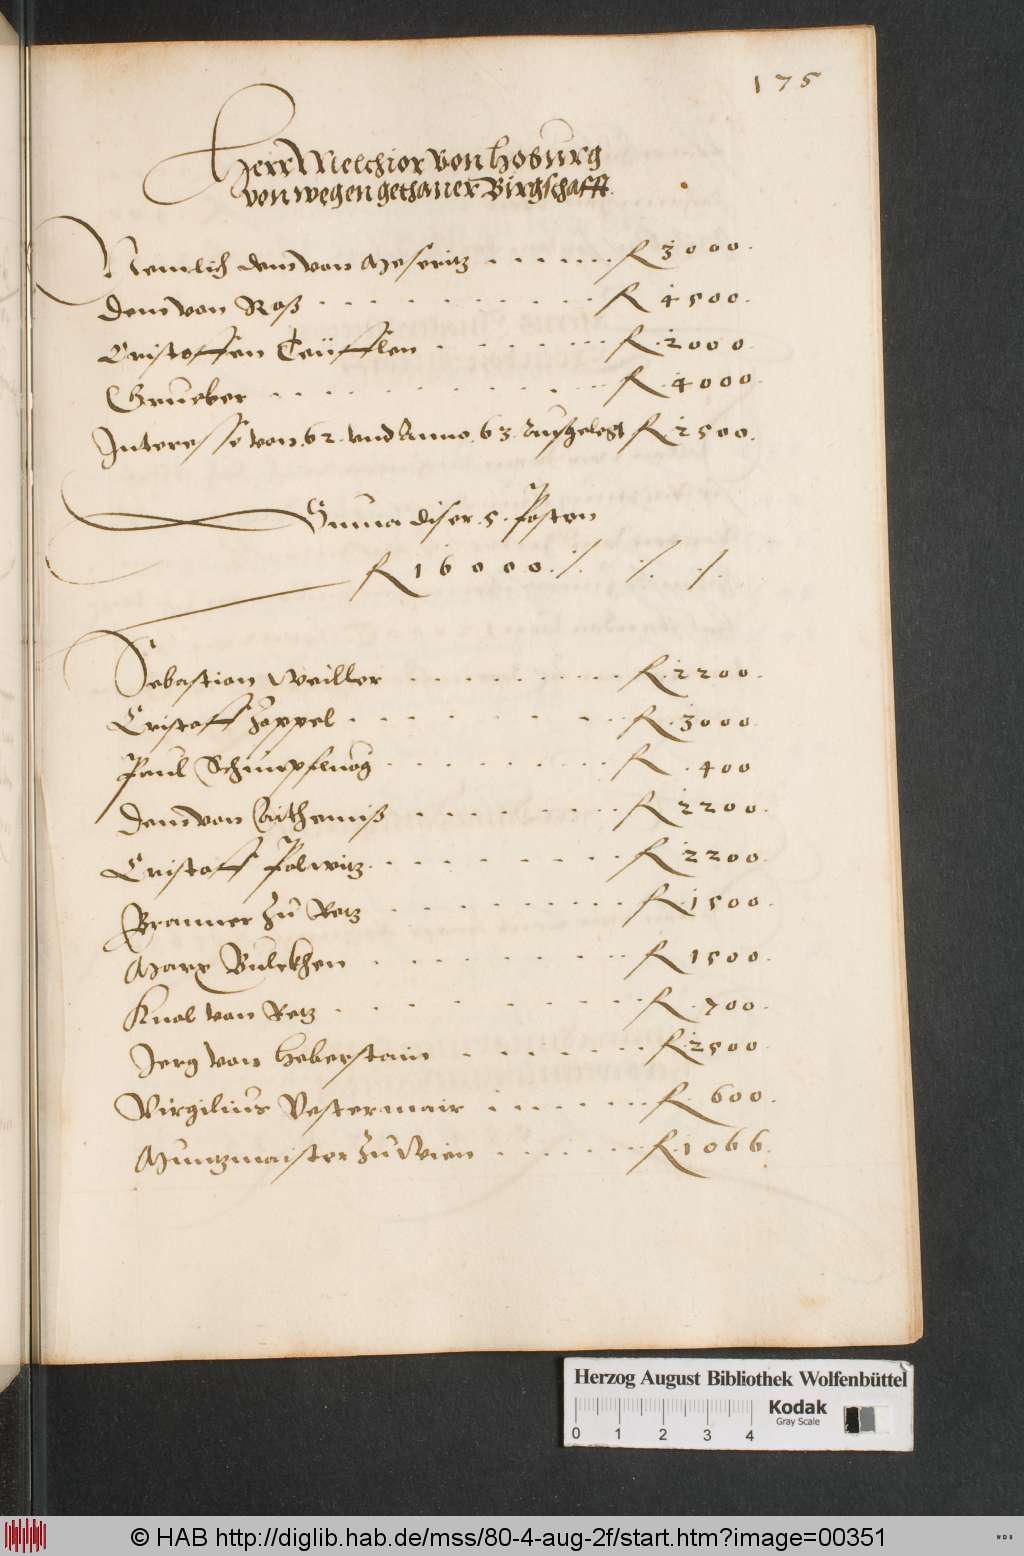 175
Herr Melchior von Hoburg
von wegen gethaner Birgschafft.
Nemlich dem von Meseritz . . . . . . fl 3000.
dem von Roß . . . . . . . . . . . . fl 4500.
Cristoffen Teüfflen . . . . . . . fl. 2000.
Grueber . . . . . . . . . . . fl. 4000.
Interesse von .62. vnd Anno .63. Ausgelegt fl 2500.
Suma diser .5. Posten
fl 16000 ./. ./. ./.
Sebastian Weiller . . . . . . . . . fl. 2200.
Cristoff Zoppel . . . . . . . . fl. 3000.
Paul . . . . . . . . . fl. 400
dem von . . . . . . . . fl 2200.
Cristoff Polwitz . . . . . . . . . fl 2200.
Pramer zu Retz . . . . . . . . . fl. 1500.
Marx . . . . . . . . . fl 1500.
Knol von Retz . . . . . . . . . fl .700.
Jerg von Heberstain . . . . . . . fl. 2500.
Virgilius Vestermair . . . . . . . fl. 600.
Muntzmaister zu Wien . . . . . . . fl. 1066.
Herzog August Bibliothek Wolfenbüttel
Kodak
Gray Scale
0 1 2 3 4
© HAB http://diglib.hab.de/mss/80-4-aug-2f/start.htm?image=00351